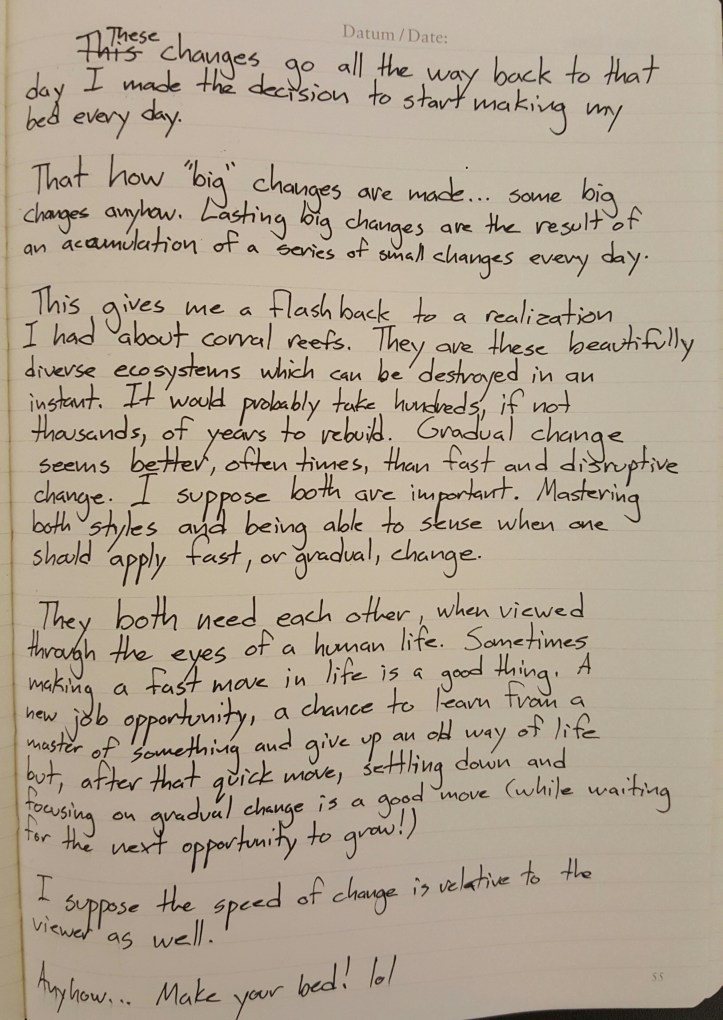 Datum / Date:
These
This changes go all the way back to that
day I made the decision to start making my
bed every day.
That how "big" changes are made... some big
changes anyhow. Lasting big changes are the result of
an accumulation of a series of small changes every day.
This gives me a flashback to a realization
I had about corral reefs. They are these beautifully
diverse ecosystems which can be destroyed in an
instant. It would probably take hundreds, if not
thousands, of years to rebuild. Gradual change
seems better, often times, than fast and disruptive
change. I suppose both are important. Mastering
both styles and being able to sense when one
should apply fast, or gradual, change.
They both need each other, when viewed
through the eyes of a human life. Sometimes
making a fast move in life is a good thing. A
new job opportunity, a chance to learn from a
master of something and give up an old way of life
but, after that quick move, settling down and
focusing on gradual change is a good move (while waiting
for the next opportunity to grow!)
I suppose the speed of change is relative to the
viewer as well.
Anyhow... Make your bed! lol
55